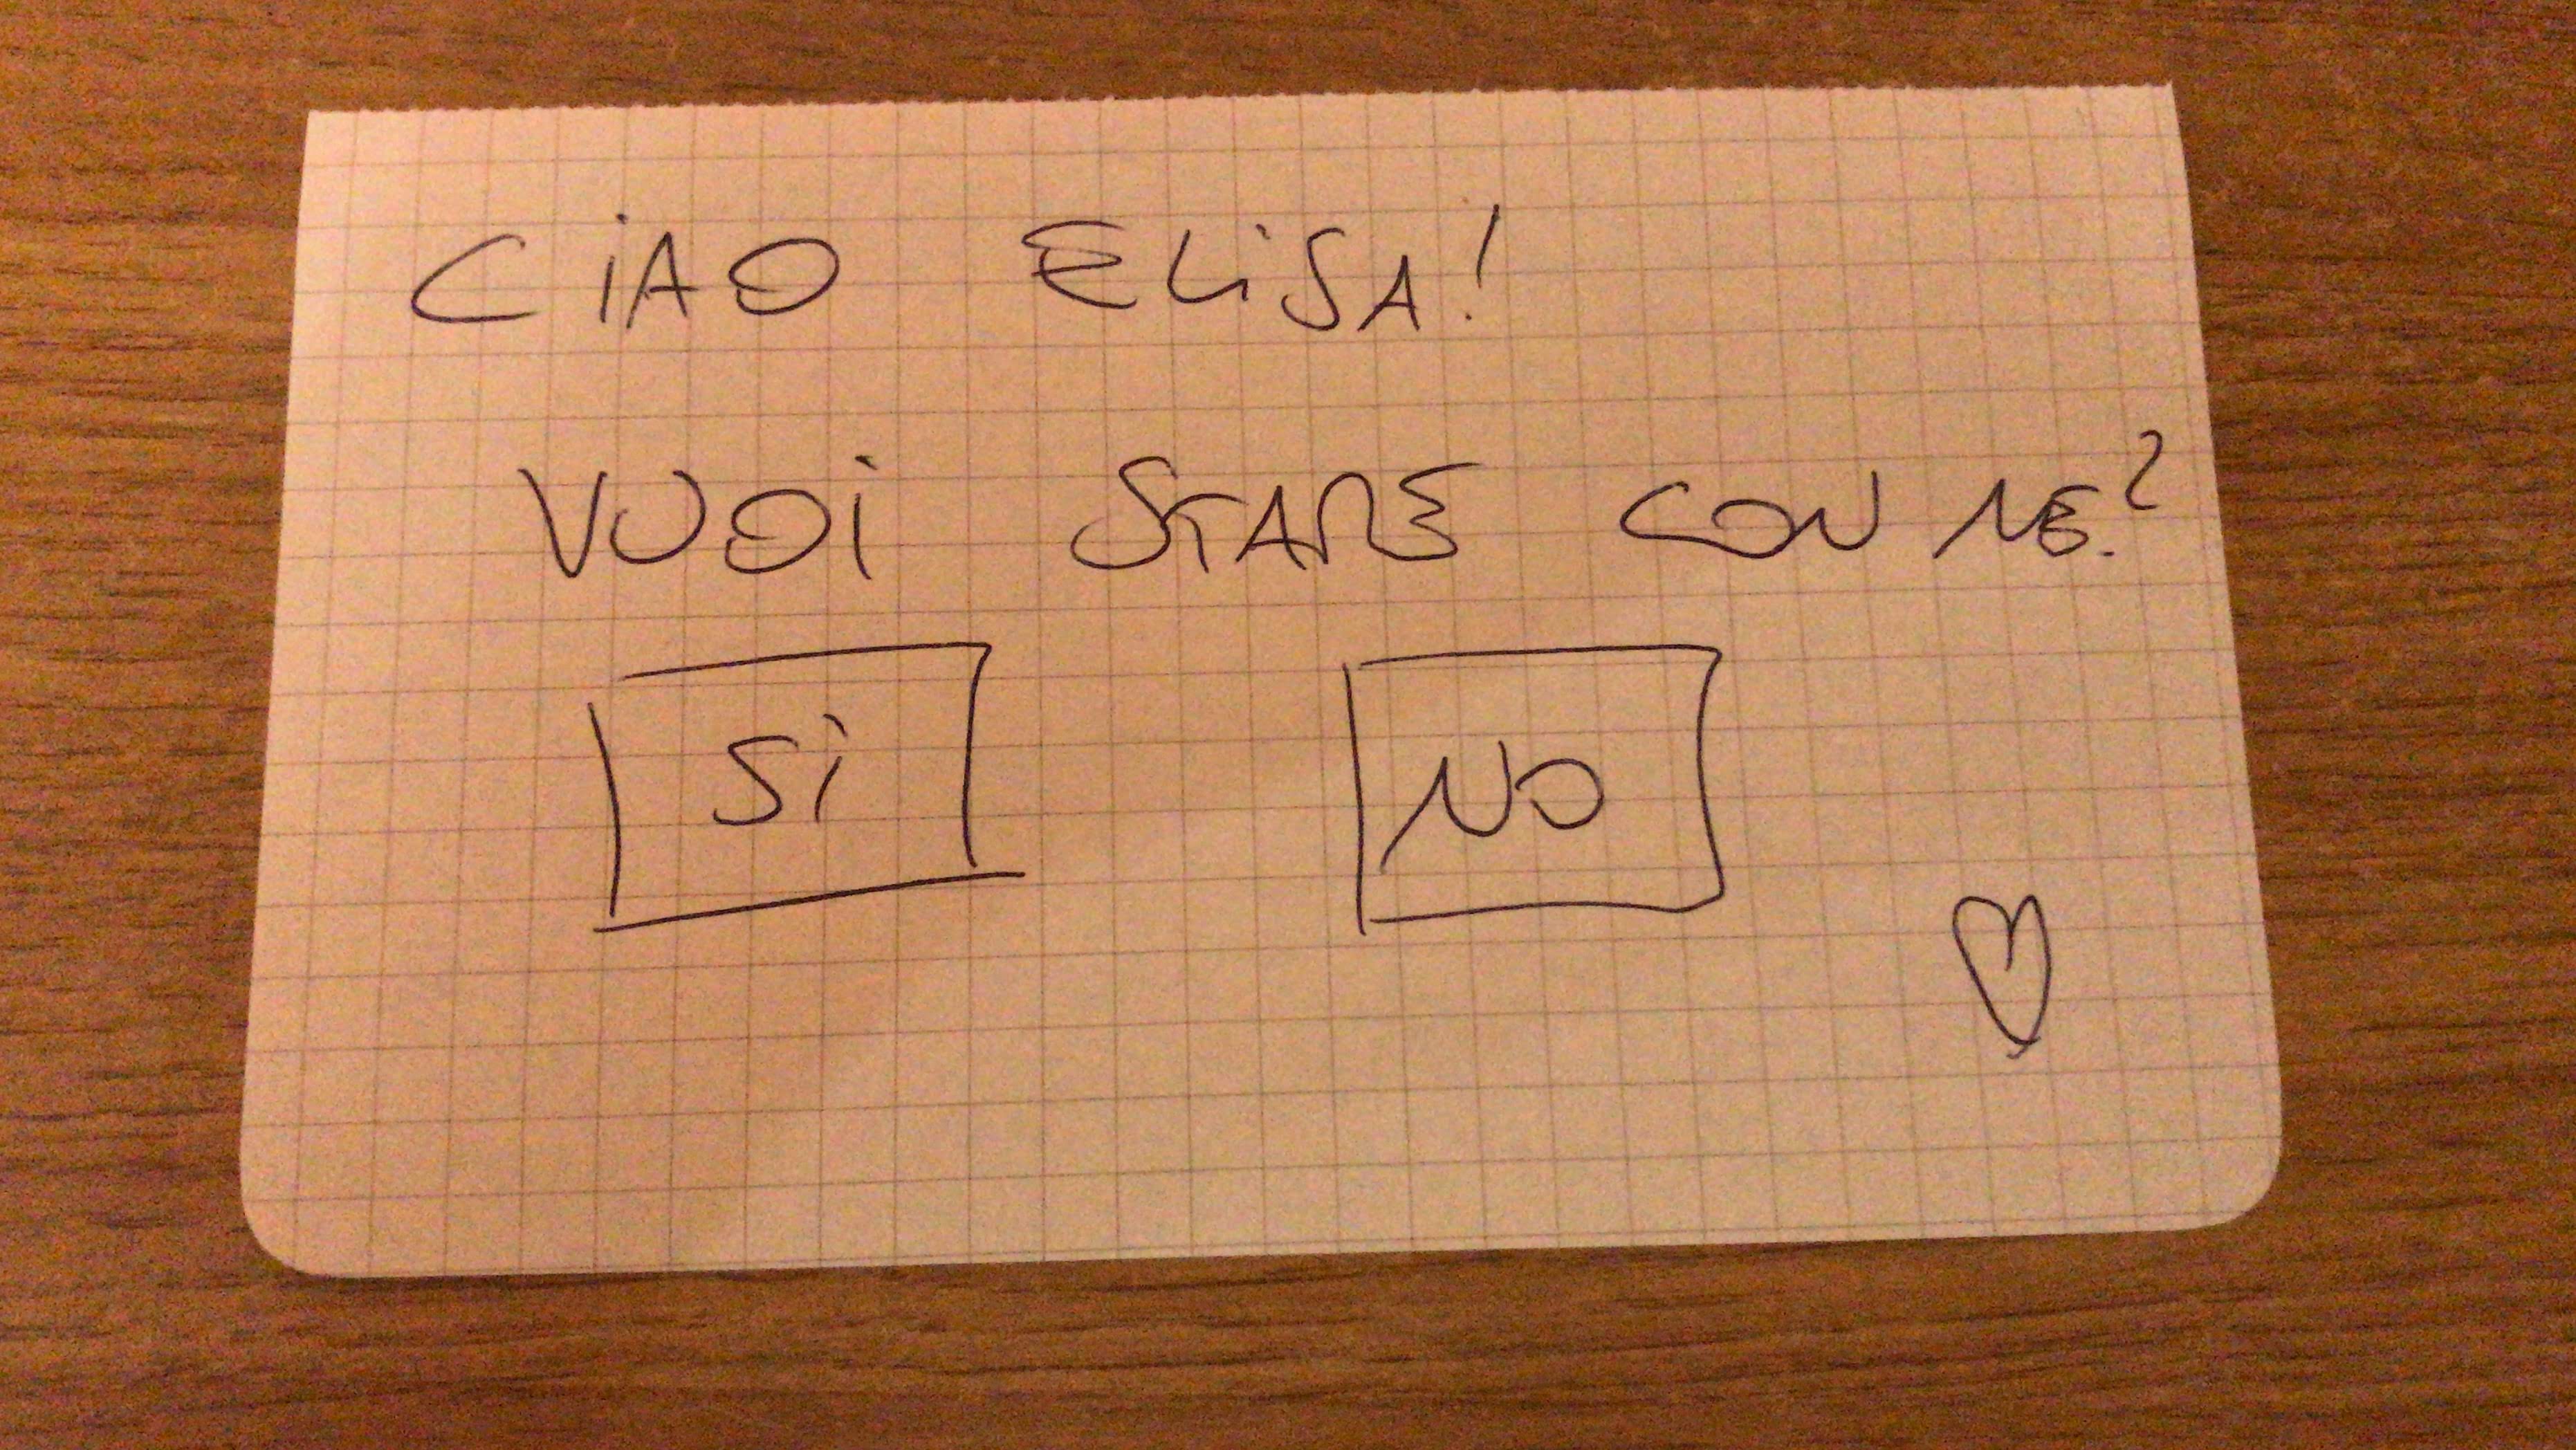 CIAO ELISA!
VUOI STARE CON ME?
SI NO